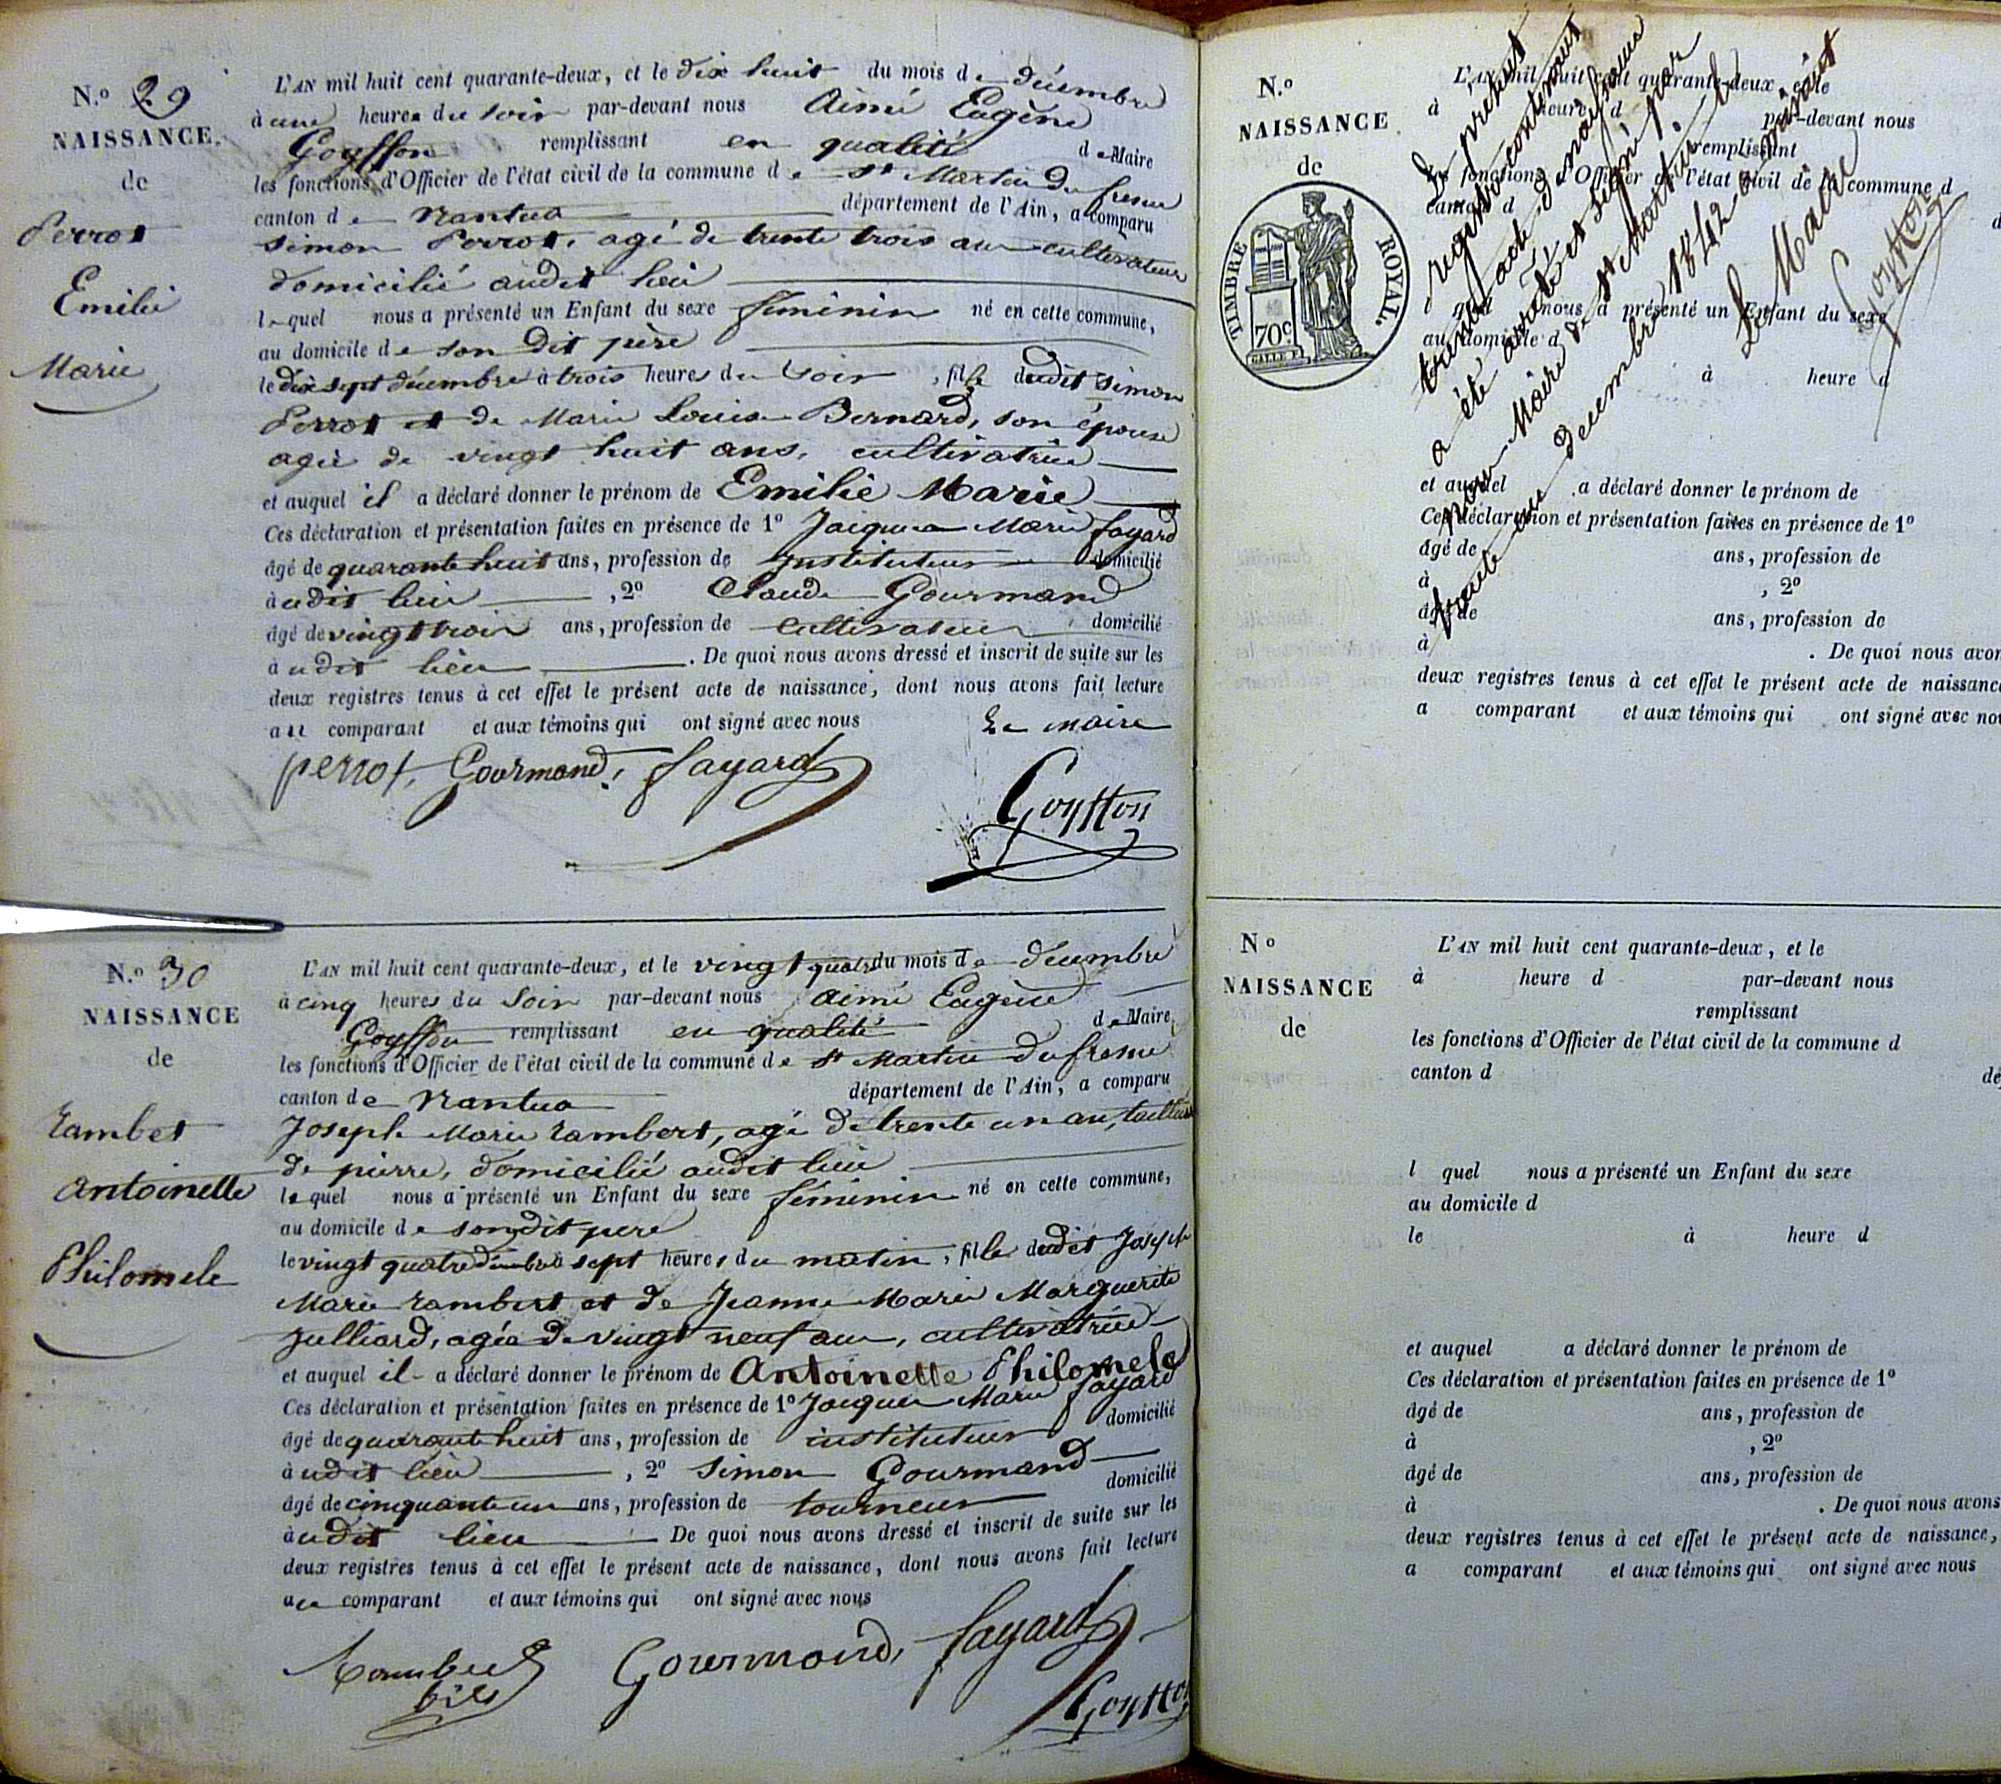 N.º 29
NAISSANCE.
de
Perrot
Emilie
Marie
L'AN mil huit cent quarante-deux, et le dix huit du mois de décembre
à une heure du soir par-devant nous Aimé Eugène
Goyffon remplissant en qualité de Maire
les fonctions d'Officier de l'état civil de la commune de St Martin Du fresne
canton de Nantua département de l'Ain, a comparu
Simon Perrot, agé de trente trois ans cultivateur
domicilié audit lieu
lequel nous a présenté un Enfant du sexe féminin né en cette commune,
au domicile de son Dit père
le dix sept décembre à trois heures du soir, fille dudit Simon
Perrot et de Marie Louise Bernard, son épouse
agée de vingt huit ans, cultivatrice
et auquel il a déclaré donner le prénom de Emilie Marie
Ces déclaration et présentation faites en présence de 1º Jacques Marie Fayard
âgé de quarante huit ans, profession de instituteur domicilié
audit lieu, 2º Claude Gourmand
âgé de vingt trois ans, profession de cultivateur domicilié
audit lieu. De quoi nous avons dressé et inscrit de suite sur les
deux registres tenus à cet effet le présent acte de naissance, dont nous avons fait lecture
au comparant et aux témoins qui ont signé avec nous Le Maire
perrot, Gourmand, fayard
Goyffon
N.º 30
NAISSANCE
de
Rambert
Antoinette
Philomele
L'AN mil huit cent quarante-deux, et le vingt quatre du mois de décembre
à cinq heures du soir par-devant nous Aimé Eugène
Goyffon remplissant en qualité de Maire,
les fonctions d'Officier de l'état civil de la commune de St Martin Du fresne
canton de Nantua département de l'Ain, a comparu
Joseph Marie Rambert, agé de trente un an, tailleur
de pierre, domicilié audit lieu
lequel nous a présenté un Enfant du sexe féminin né en cette commune,
au domicile de son dit père
le vingt quatre décembre à sept heures du matin, fille dudit Joseph
Marie Rambert et de Jeanne Marie Marguerite
Julliard, agée de vingt neuf ans, cultivatrice
et auquel il a déclaré donner le prénom de Antoinette Philomele
Ces déclaration et présentation faites en présence de 1º Jacques Marie Fayard
âgé de quarante huit ans, profession de instituteur domicilié
audit lieu, 2º Simon Gourmand
âgé de cinquante un ans, profession de tourneur domicilié
audit lieu De quoi nous avons dressé et inscrit de suite sur les
deux registres tenus à cet effet le présent acte de naissance, dont nous avons fait lecture
au comparant et aux témoins qui ont signé avec nous
Rambert Gourmand, fayard
fils
Goyffon
N.º
NAISSANCE
de
TIMBRE ROYAL.
70c
L'AN mil huit cent quarante-deux, et le
à heure d par-devant nous
remplissant
les fonctions d'Officier de l'état civil de la commune d
canton d
l quel nous a présenté un Enfant du sexe
au domicile d
à heure d
et auquel a déclaré donner le prénom de
Ces déclaration et présentation faites en présence de 1º
âgé de ans, profession de
à , 2º
âgé de ans, profession de
à . De quoi nous avon
deux registres tenus à cet effet le présent acte de naissance
a comparant et aux témoins qui ont signé avec nou
Le présent
registre contenant
trente actes de naissances
a été arrêté et signé par
nous Maire de St Martin
trente un décembre 1842
Le Maire
Goyffon
N º
NAISSANCE
de
L'AN mil huit cent quarante-deux, et le
à heure d par-devant nous
remplissant
les fonctions d'Officier de l'état civil de la commune d
canton d dé
l quel nous a présenté un Enfant du sexe
au domicile d
le à heure d
et auquel a déclaré donner le prénom de
Ces déclaration et présentation faites en présence de 1º
âgé de ans, profession de
à , 2º
âgé de ans, profession de
à . De quoi nous avons
deux registres tenus à cet effet le présent acte de naissance,
a comparant et aux témoins qui ont signé avec nous